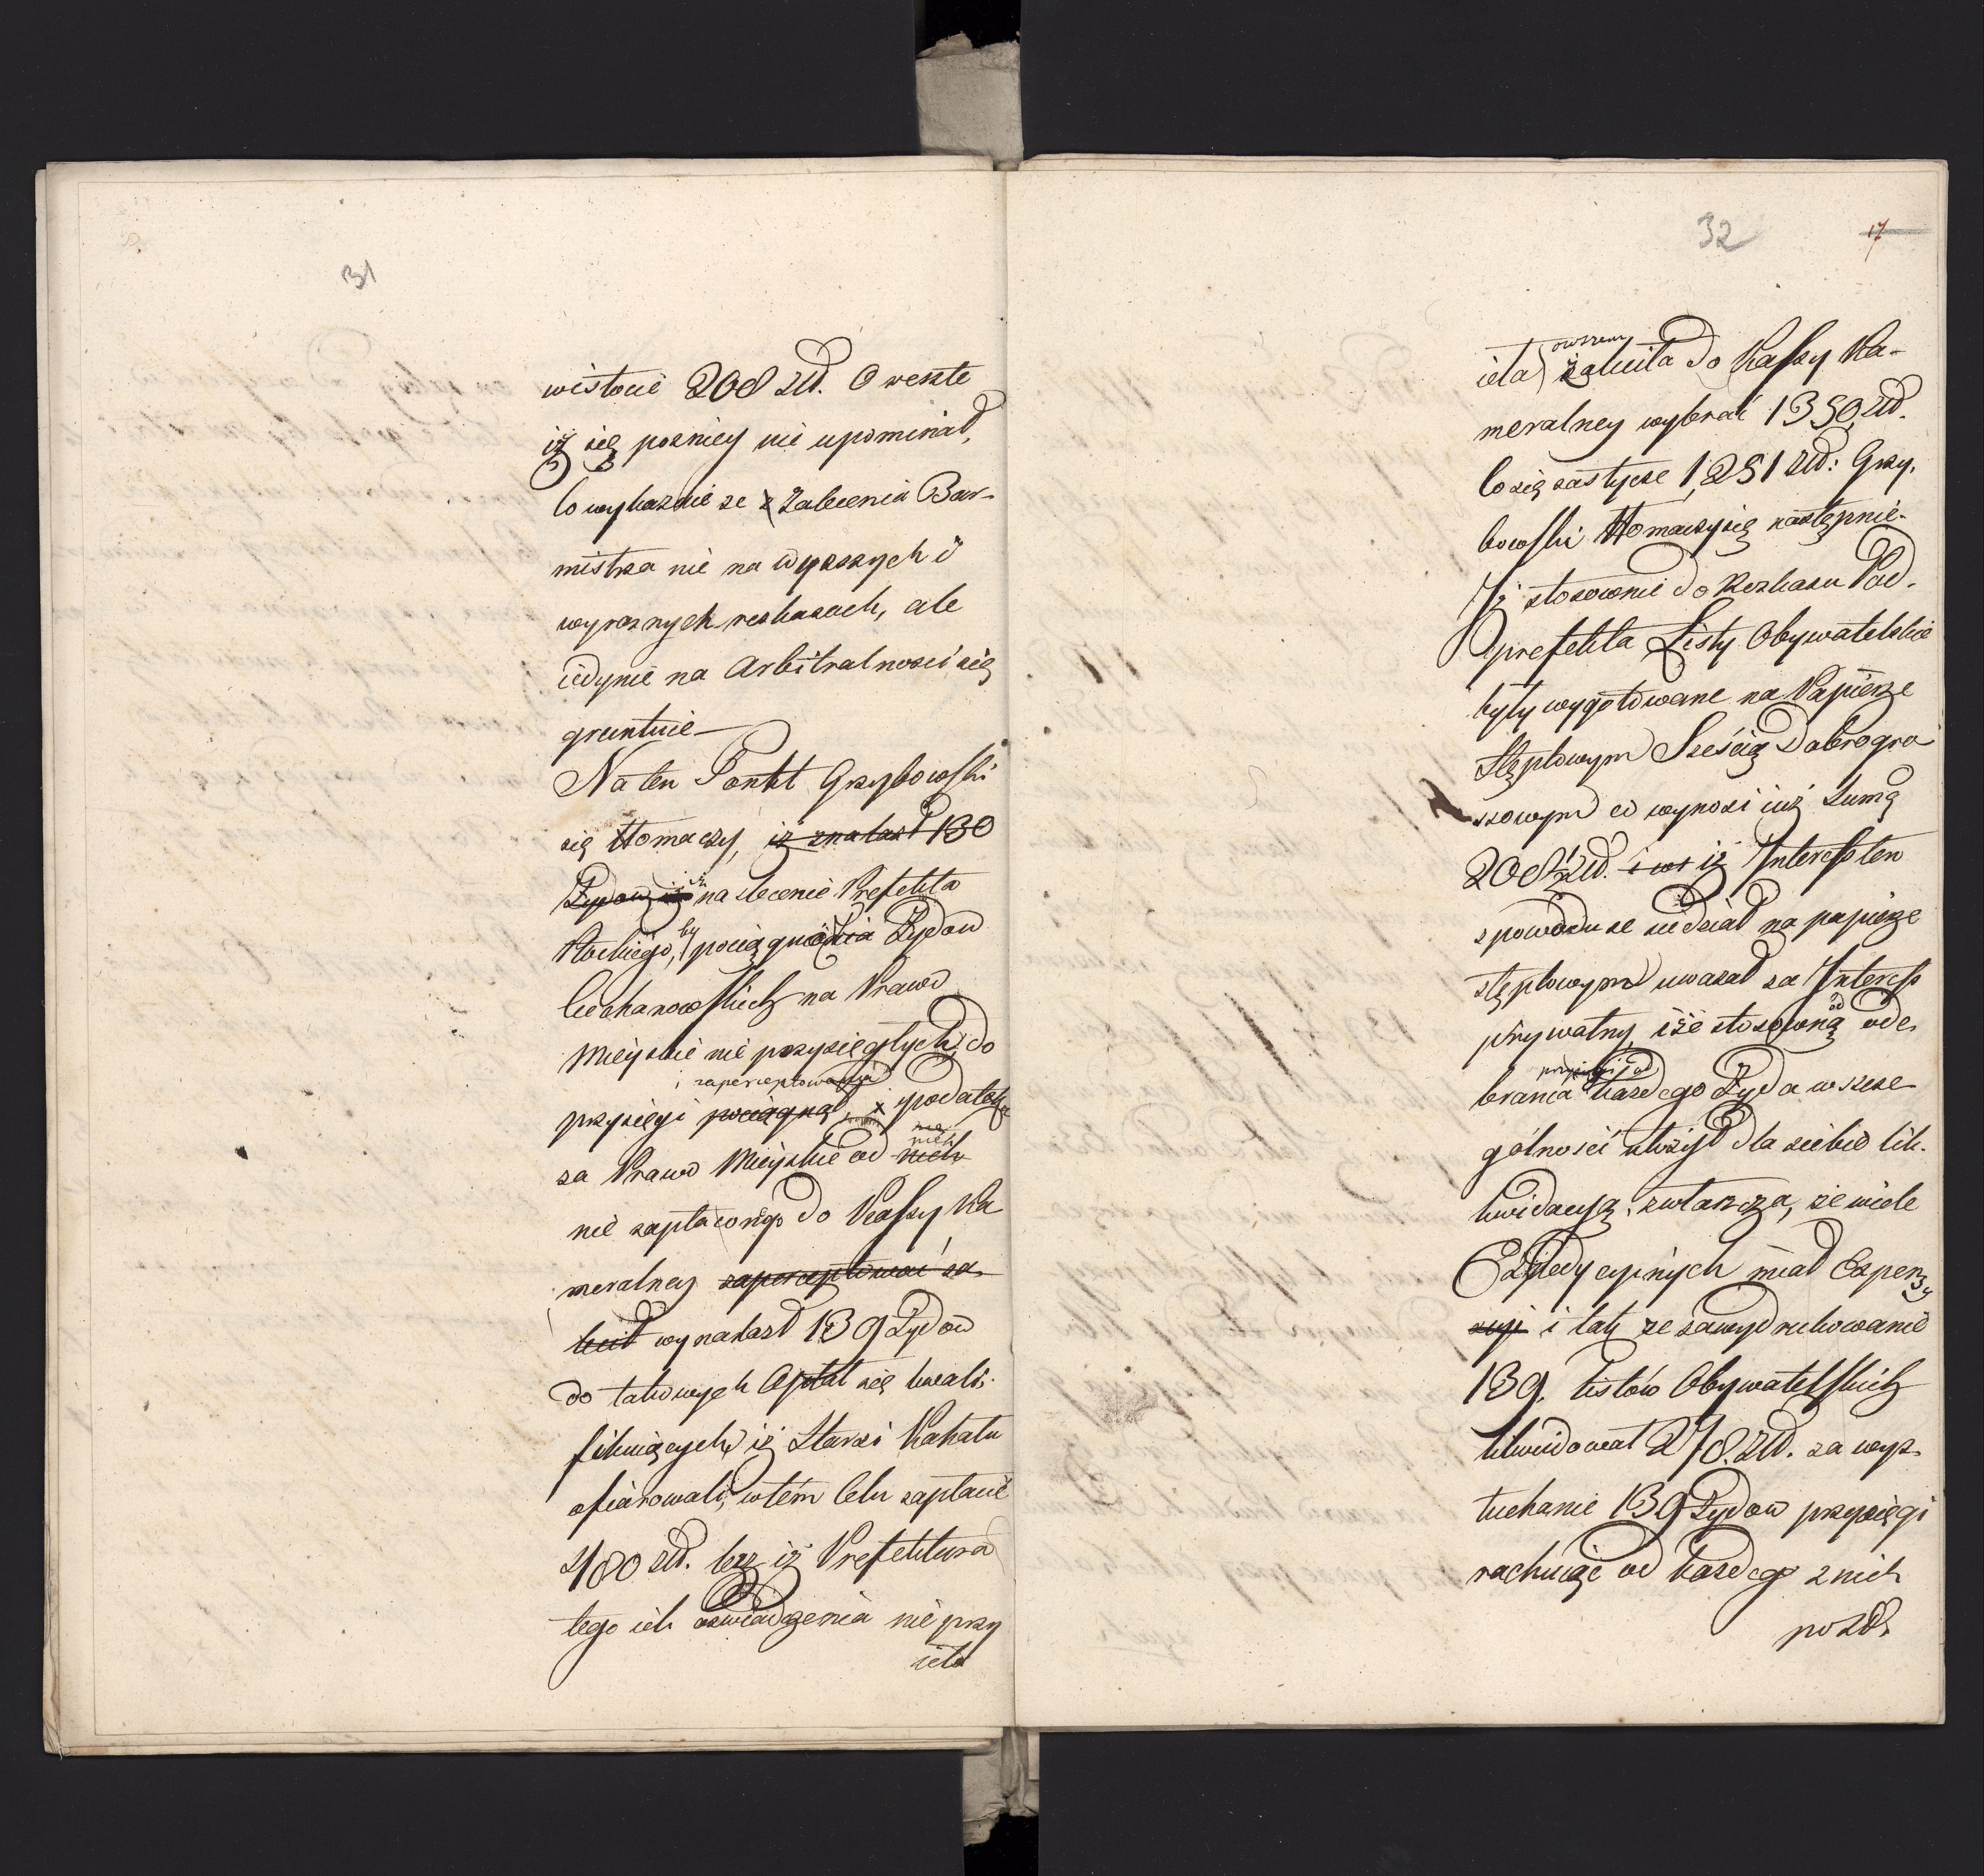 31
wistocie 208 zł. O reszte
iż się pozniey nie upominał,
co wykaznie ze z zalecenia Bur-
mistrza nie na wyższych i
wyraznych rozkazach, ale
iedynie na Arbitralnosci się
gruntuie —
Na ten Ponkt Grzybowski
się tłomaczy, iż znalazł 130
Żydow iż iż na zlecenie Prefekta
Płockiego, by pociągnienia Żydow
Ciechanowskich na Prawo
Mieyskie nie przysięgłych, do
i zaperceptowania
przysięgi pociągnął, x y podatek
za Prawo Mieyskie od nich
nie zapłaconego do Kassy Ka
meralney zapercentować za-
lecił wynalazł 139 Żydow
do takowych Opłat się kwali-
fikuiących, iż Starsi Kahału
ofiarowali, w tém Celu zapłacić
480 zł. lecz iż Prefektura
tego ich oswiadczenia nie przy
ieła
32
17
ieła owszem zaleciła do Kassy Ka-
meralney wybrać 1390 zł.
Co się zas tycze 1,251 zł: Grzy-
bowski tłomaczy się następnie.
Iż stosownie do Rozkazu Pod-
prefekta Listy Obywatelskie
były wygotowane na Papierze
Stęplowym Sześcią Dobrogro
szowym co wynosi iuż Sumę
208½ zł. i w iż Interess ten
z powodu ze niedział na papierze
stęplowym uwazał za Interess
prywatny, iże stosowną od ode-
brania przysięgi od kazdego Żyda w szcze-
gólnosci złożył dla siebie lik-
kwidacyą, zwłaszcza, że wiele
Expedycyinych miał Expensy
i tak ze zawydrukowanie
139. Listów Obywatelskich
likwidował 278. zł. za wys-
łuchanie 139 Żydow przysięgi
rachuiąc od kazdego z nich
po zł.